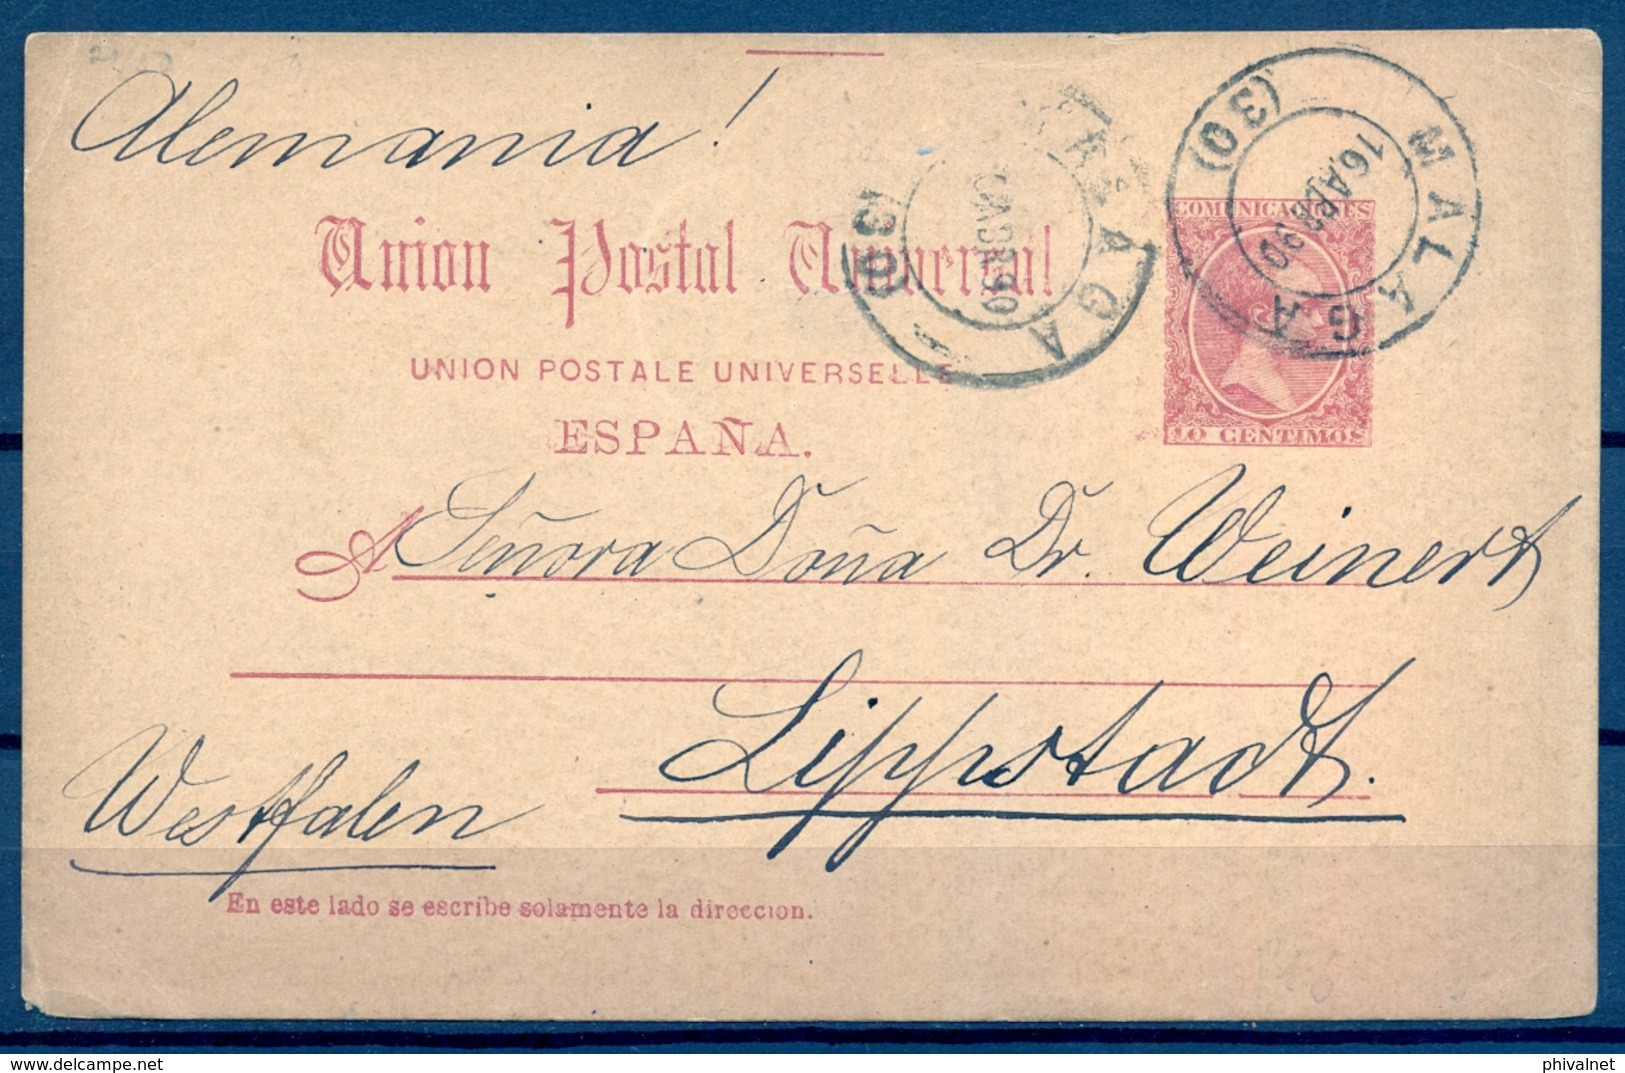 Alemania!
MALAGA
(30)
16 ABR 90
MALAGA
(30)
ABR 90
COMUNICACIONES
Union Postal Universal
UNION POSTALE UNIVERSELLE
ESPAÑA.
10 CENTIMOS
A Señora Doña Dr. Weinert
Lippstadt.
Westfalen
En este lado se escribe solamente la direccion.
phivalnet